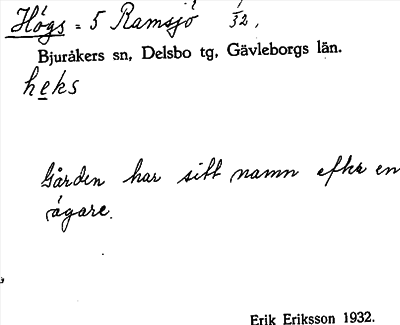 Högs = 5 Ramsjö 1/32.
Bjuråkers sn, Delsbo tg, Gävleborgs län.
heks
Gården har sitt namn efter en
ägare.
Erik Eriksson 1932.